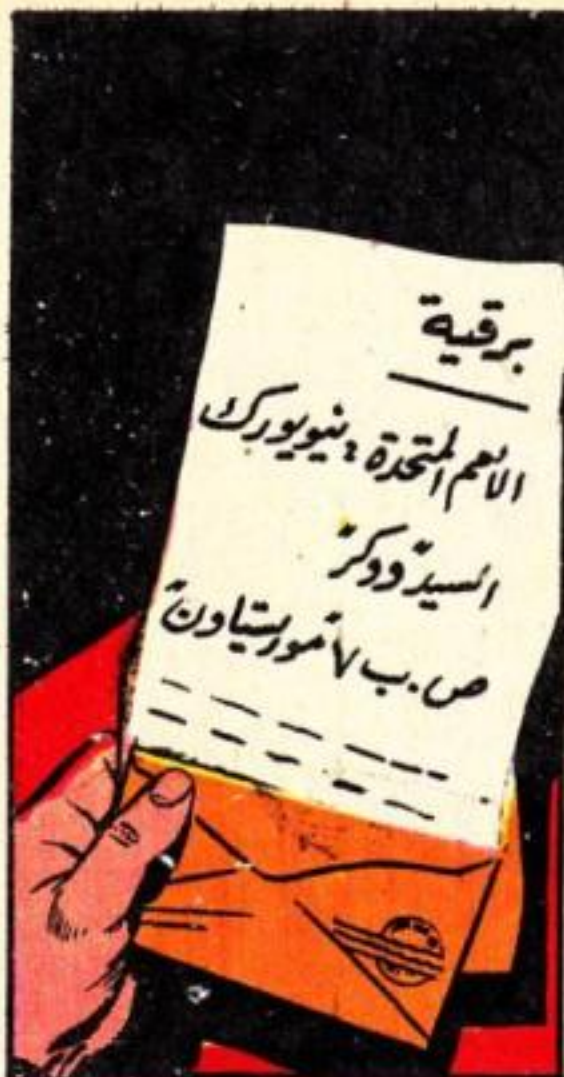 برقية
الأمم المتحدة : نيويورك
السيد "ووكر"
ص.ب ٧ "موريستاون"